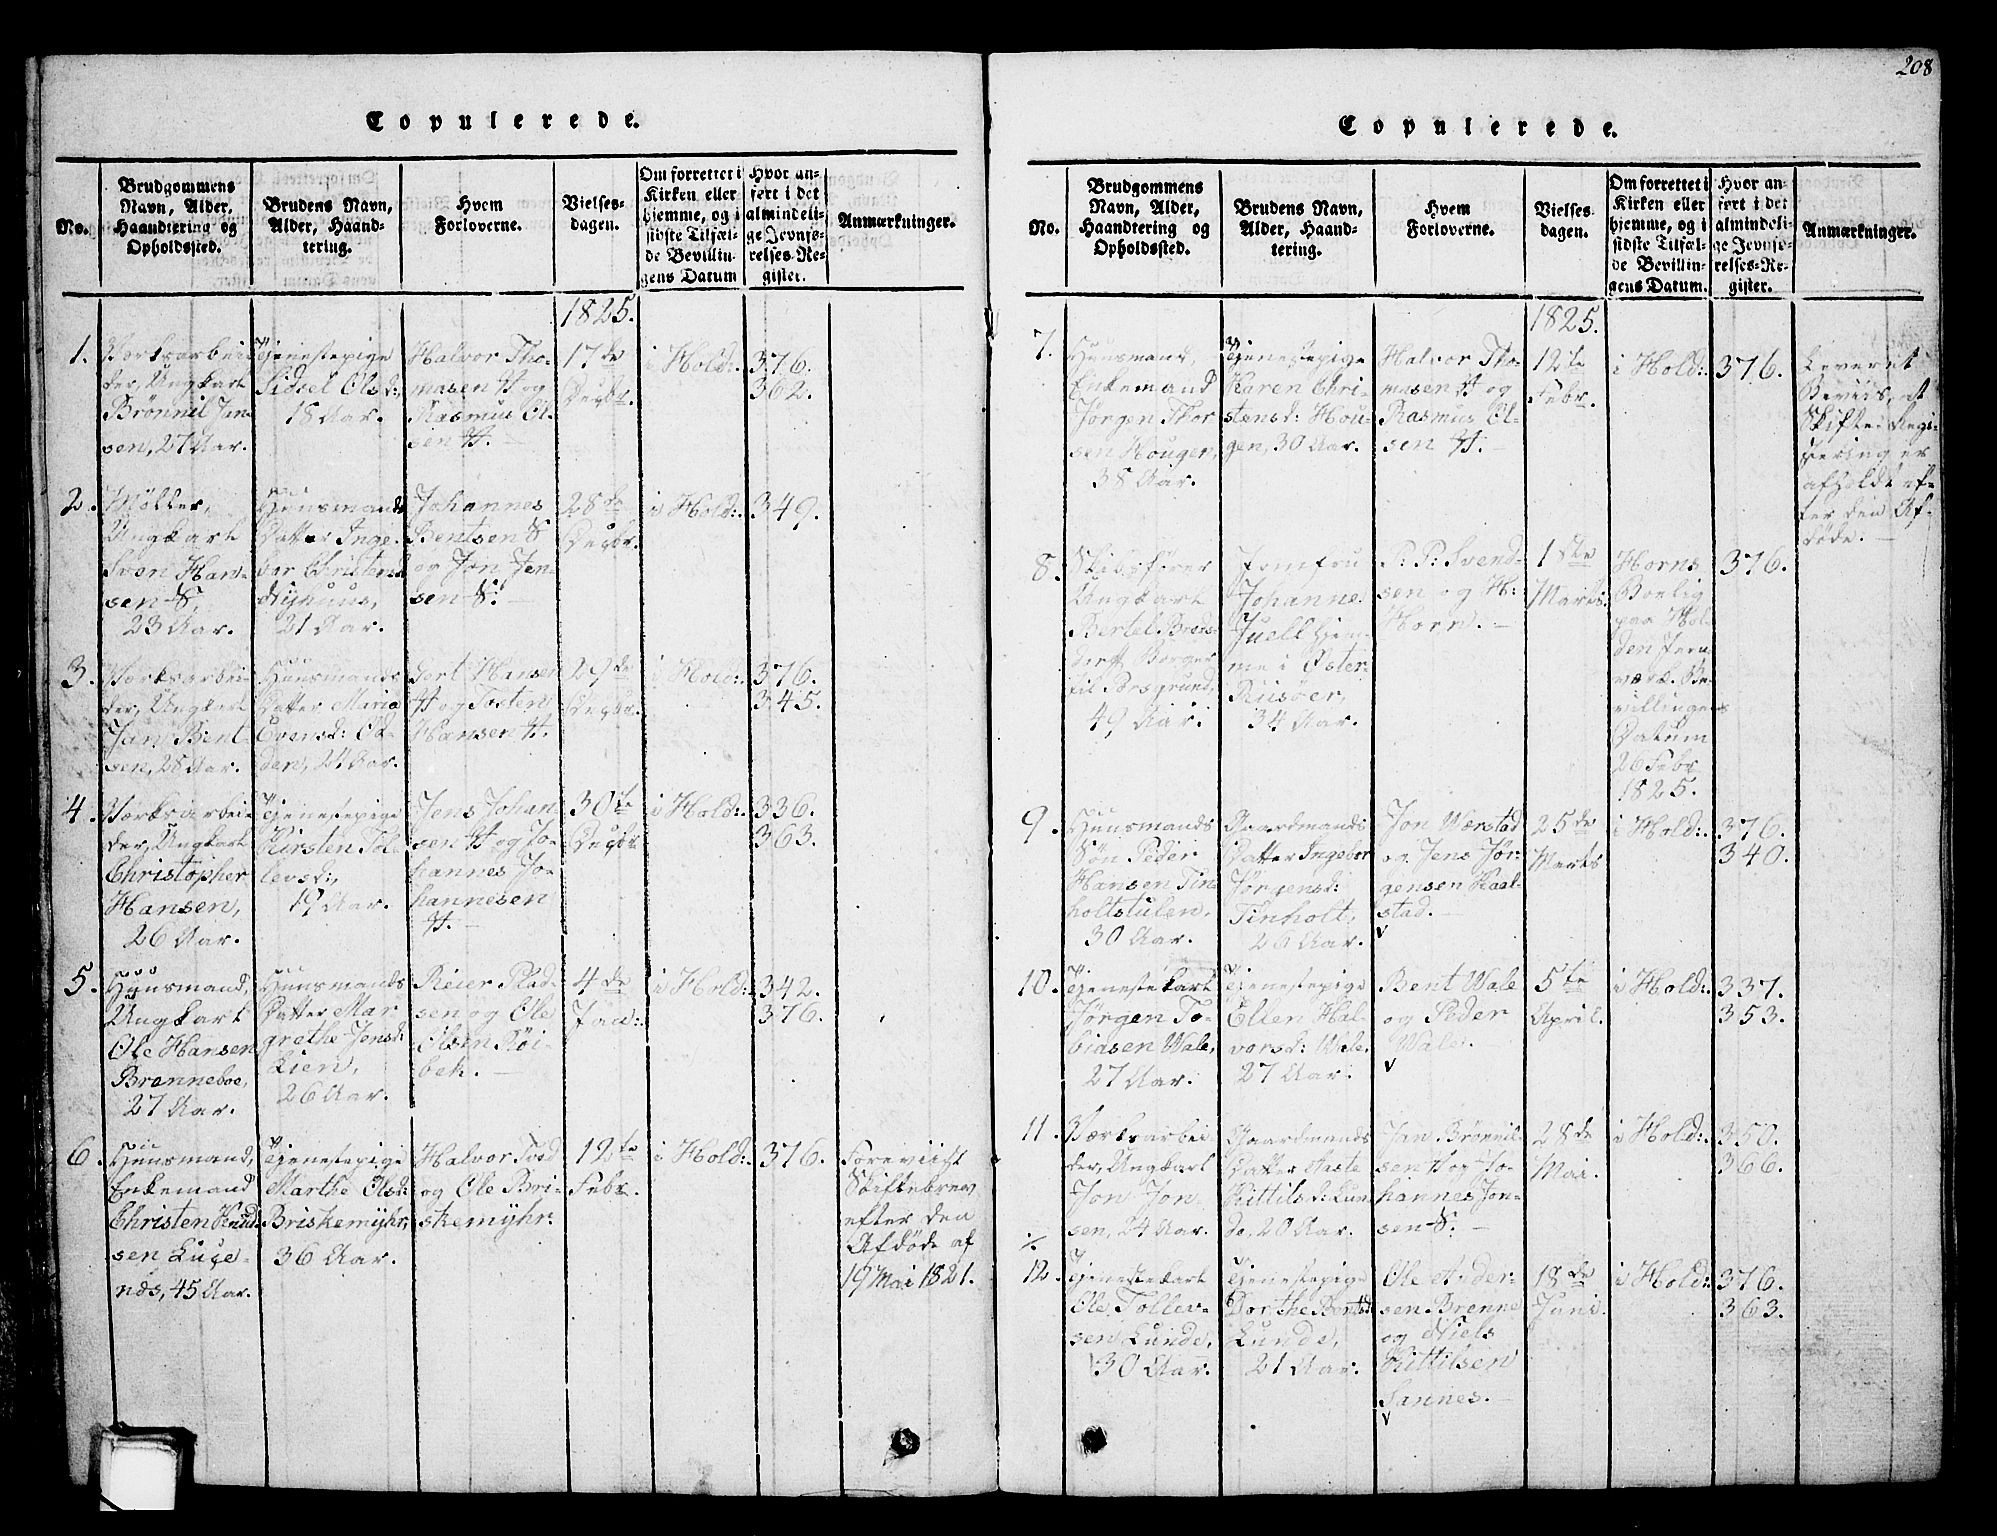 208
Copulerede.
No.
Brudgommens
Navn, Alder,
Haandtering og
Opholdssted.
Brudens Navn,
Alder, Haand-
tering.
Hvem
Forloverne.
Vielses-
dagen.
Om forrettet i
Kirken eller
hjemme, og i
sidste Tilfæl-
de Bevillin-
gens Datum
Hvor an-
ført i det
almindeli-
ge Jevnfø-
relses-Re-
gister.
Anmærkninger.
1825.
1.
Værksarbei-
der, Ungkarl
Brønnil Jan-
sen, 27 Aar.
Tjenestepige
Sidsel Olsd:
18 Aar.
Halvor Tho-
masen H og
Rasmus Ol-
sen H. -
17de
Decbr.
i Hold:
376.
362.
2.
Møller,
Ungkarl
Sven Han-
sen S,
23 Aar.
Huusmands
Datter Inge-
bor Christensd
Nyhuus,
21 Aar.
Johannes
Bentsen S
og Jon Jen-
sen S. -
28de
Decbr.
i Hold:
349.
3.
Værksarbei-
der, Ungkarl
Jan Bent-
sen, 28 Aar.
Huusmands
Datter Maria
Evensd: Ol-
den, 21 Aar.
Hansen
H og Tosten
Hansen H.
29de
Decbr.
i Hold:
376.
345.
4.
Værksarbei-
der, Ungkarl
Christopher
Hansen,
26 Aar.
Tjenestepige
Kirsten Tol-
levsd:,
19 Aar.
Jens Johan-
sen H og Jo-
hannes Jo-
hannesen
H. -
30te
Decbr.
i Hold:
336.
363.
5.
Huusmand,
Ungkarl
Ole Hansen
Brænneboe,
27 Aar.
Huusmands
Datter Mar
grethe Jensd:
Lien,
26 Aar.
Reier Plad-
sen og Ole
Olsen Røi-
bek. -
4de
Jan:
i Hold:
342.
376.
6.
Huusmand,
Enkemand
Christen Knud-
sen Luge-
nds, 45 Aar.
Tjenestepige
Marthe Olsd:
Briskemyhr,
36 Aar.
Halvor Tved
og Ole Bri-
skemyhr.
12te
Febr.
i Hold:
376.
Foreviist
Skiftebrev
efter den
Afdøde af
19 Mai 1821.
Copulerede.
No.
Brudgommens
Navn, Alder,
Haandtering og
Opholdssted.
Brudens Navn,
Alder, Haand-
tering.
Hvem
Forloverne.
Vielses-
dagen.
Om forrettet i
Kirken eller
hjemme, og i
sidste Tilfæl-
de Bevillin-
gens Datum.
Hvor an-
ført i det
almindeli-
ge Jevnfø-
relses-Re-
gister.
Anmærkninger.
1825.
7.
Huusmand,
Enkemand
Jørgen Thor
sen Hougen,
38 Aar.
Tjenestepige
Karen Chri-
stensd: Hou-
gen, 30 Aar.
Halvor Tho-
masen H og
Rasmus Ol-
sen H. -
12te
Febr.
i Hold:
376.
Leveret
Beviis, at
Skifte-Regi-
stering er
afholdt ef-
ter den Af-
døde. -
8.
Skibsfører
Ungkarl
Bertel Breds-
dorff Borger
til Porsgrund,
49 Aar.
Jomfru
Johanne
Juell hjem-
me i Øster-
Riisøer,
34 Aar.
P: P: Svend-
sen og H:
Horn. -
1ste
Marts.
Horns
Boelig
paa Hol-
den Jern-
værk. Be-
villingens
Datum
26 Febr
1825.
376.
9.
Huusmands
Søn Peder
Hansen Tin-
holtstulen,
30 Aar.
Gaardmands
Datter Ingebor
Jørgensd:
Tinholt,
26 Aar.
Jon Wærstad
og Jens Jør-
gensen Kaal-
stad. -
v
25de
Marts
i Hold:
376.
340.
10.
Tjenestekarl
Jørgen To-
biasen Wale,
27 Aar.
Tjenestepige
Ellen Hal-
vorsd: Wale.
27 Aar.
Bent Wale
og Peder
Wale. -
v
5te
April.
i Hold:
337.
353.
11.
Værksarbei-
der, Ungkarl
Jon Jon-
sen, 24 Aar.
Gaardmands
Datter Aaste
Kittilsd: Lun
de, 20 Aar.
Jan Brønnil-
sen H og Jo-
hannes Jon-
sen S. -
28de
Mai.
i Hold:
350.
366.
12.
Tjenestekarl
Ole Tollev-
sen Lunde,
30 Aar.
Tjenestepige
Dorthe Bentsd
Lunde,
21 Aar.
Ole Ander-
sen Brenne
og Niels
Kittilsen
Sannes. -
v
18de
Juni.
i Hold:
376.
363.